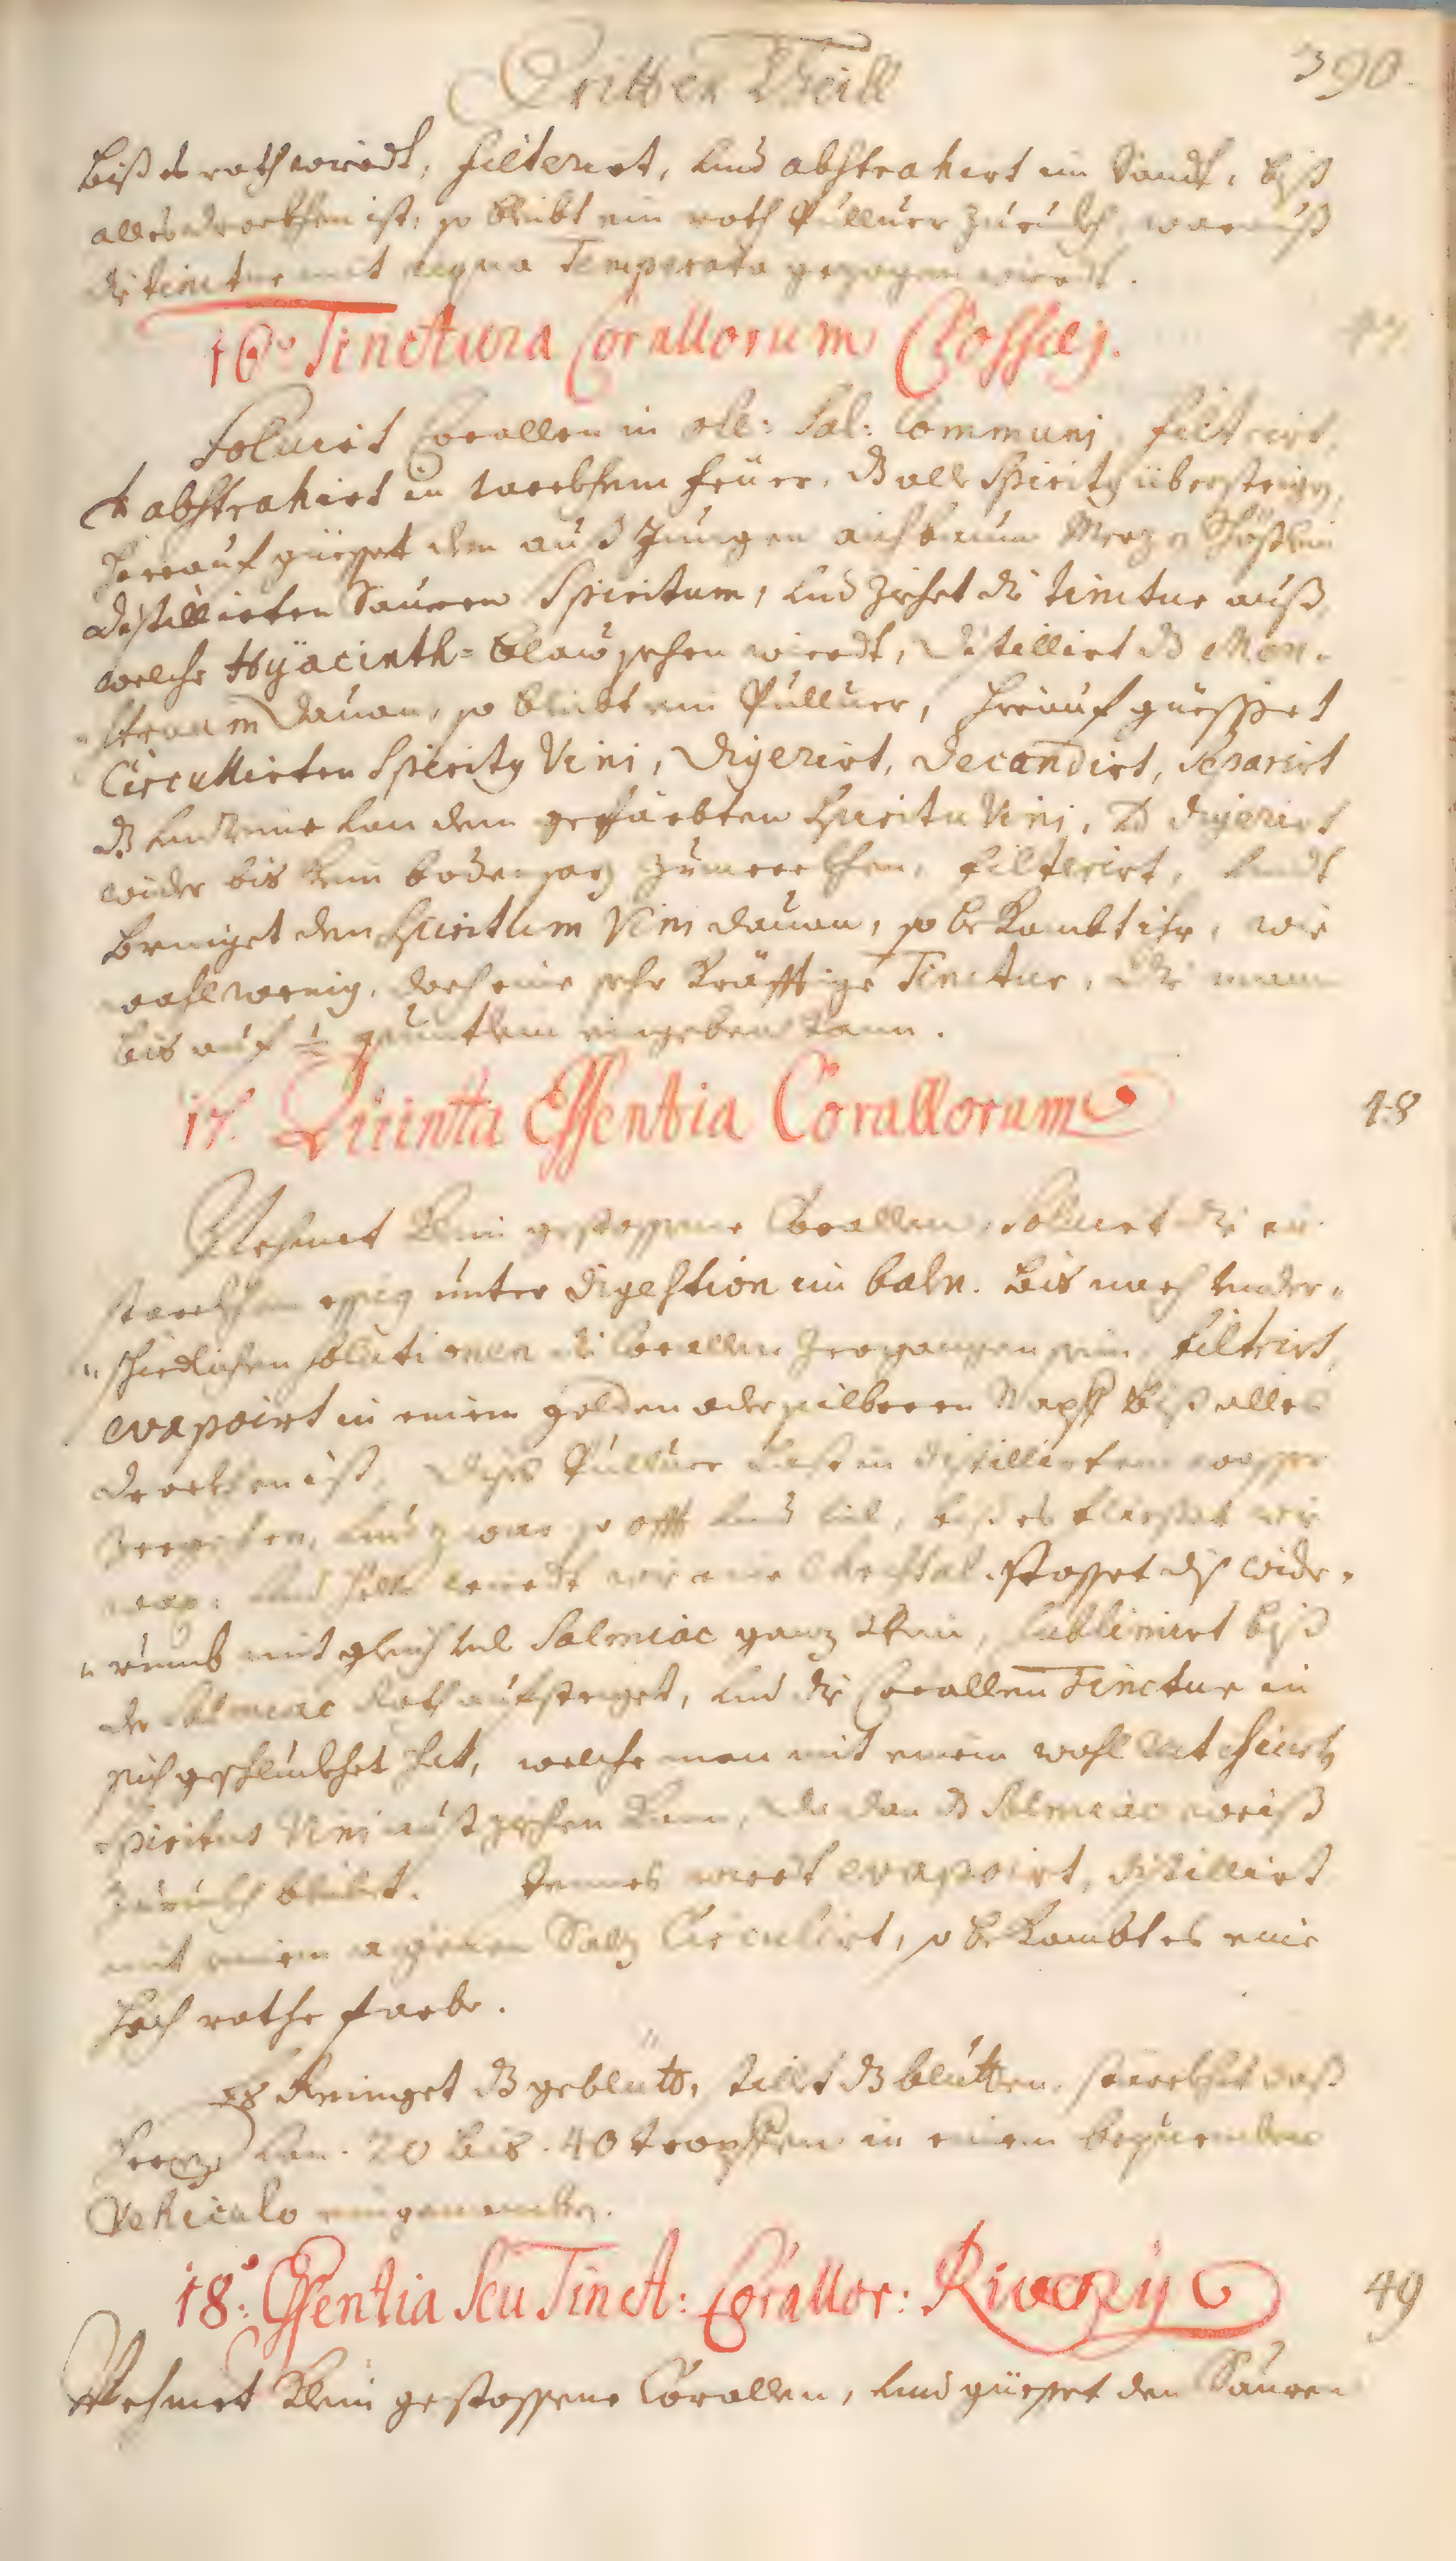 Dritter Theill
390.
biß es roth wiredt, filterirt, und abstrahirt im Sandt, biß
alles druckhen ist, so bleibt ein roth Pulluer zuruckh, warauß
die tinctur mit aqua Temperata gezogen wiredt.
16.º Tinctura Corallorum Clossæj.
47
Soluirt Corallen in oll: Sal: Communj, filtrirt,
& abstrahirt in starckhem feüer, dß alle Spirity übersteigen,
hierauf güesset den auß Jungen aichbaum
distillierten Sauren Spiritum, und ziehet die tinctur auß,
welche Hÿacinth-blaw sehen wiredt, distillirt dß Men-
struum dauon, so bleibt ein Pulluer, hierauf güesset
Circullirten Spirity Vini, digerirt, decandirt, separirt
dß unreine von dem gefärbten Spiritu Vini, & digerirt
wider bis kein bodensaz zumerckhen, filterirt, undt
bringet den Spiritum Vini dauon, so bekombt ihr, wie
wohl wenig, doch eine sehr kräfftige Tinctur, die man
bis auf ½ quintlein eingeben kann.
17. Quinta Essentia Corallorum
48
Nehmet klein gestossene Corallen, Soluirt die in
starckhem essig unter digestion im baln. bis nach under-
schiedlichen solutionen die Corallen zergangen sein, filtrirt,
evaporirt in einem golden oder silberen Napff biß alles
druckhen ist, dises Pulluer last in distillirtem wasser
zergehen, und zwar so offt und vil, biß es fliesset wie
wax, und hell wiredt wie eine Chrystal. stosset diß wide-
rumb mit gleich vil Salmiac ganz klein, sublimirt biß
der Salmiac Roth aufsteiget, und die Corallen Tinctur in
sich geschluckhet hat, welche man mit einem wohl rectificirtn
Spiritus Vini auß ziehen kan, da dan dß Salmiac weiß
zuruckh bleibt. Jennes wirdt evaporirt, distillirt
mit einem aigenen Salz Circulirt, so bekombt es eine
hoch rothe farbe.
Es Reiniget dß geblütt, stillt dß blutten, stärckhet daß
herz, von 20 bis 40 tropffen in einem bequemben
Vehiculo eingenomben.
18.º Essentia Seu Tinct: Corallor: Riverÿ
49
Nehmet klein gestossene Corallen, und güesset den Sauren